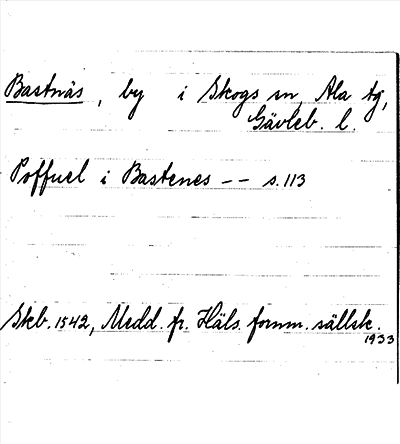 Bastnäs, by i Skogs sn, Ala tg,
Gävleb. l.
Poffuel i Bastenes -- s. 113
Skb. 1542, Medd. fr. Häls. fornm. sällsk.
1933